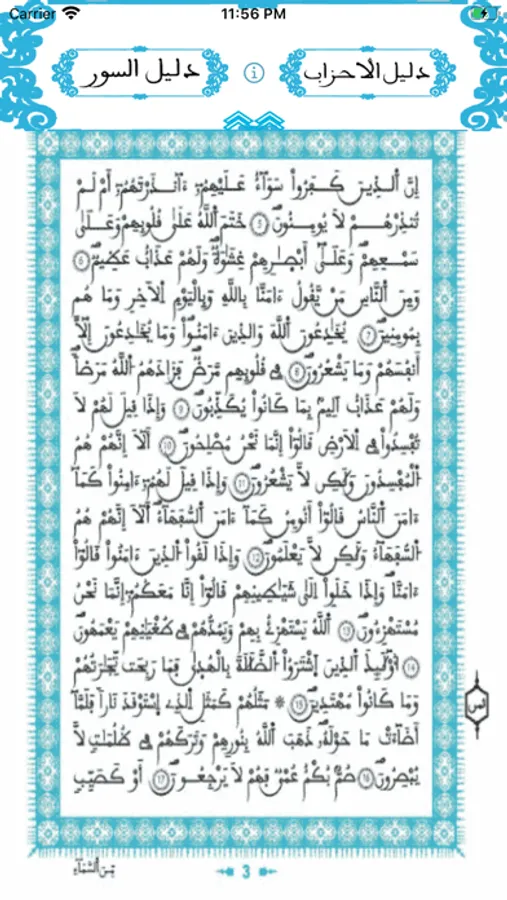 Carrier 11:56 PM
دليل السور
دليل الاحزاب
إِنَّ اَ۬لذِينَ كَفَرُواْ سَوَآءٌ عَلَيْهِمُۥٓ ءَآنذَرْتَهُمُۥٓ أَمْ لَمْ
تُنذِرْهُمْ لَا يُومِنُونَۖ 5 خَتَمَ اَ۬للَّهُ عَلَىٰ قُلُوبِهِمْ وَعَلَىٰ
سَمْعِهِمْۖ وَعَلَىٰٓ أَبْصٰ۪رِهِمْ غِشَٰوَةٞۖ وَلَهُمْ عَذَابٌ عَظِيمٞۖ 6
وَمِنَ اَ۬لنَّاسِ مَنْ يَّقُولُ ءَامَنَّا بِاللَّهِ وَبِالْيَوْمِ اِ۬لَاخِرِ وَمَا هُم
بِمُومِنِينَۖ 7 يُخَٰدِعُونَ اَ۬للَّهَ وَالذِينَ ءَامَنُواْ وَمَا يُخَٰدِعُونَ إِلَّآ
أَنفُسَهُمْ وَمَا يَشْعُرُونَۖ 8 فِے قُلُوبِهِم مَّرَضٞ فَزَادَهُمُ اُ۬للَّهُ مَرَضاٗۖ
وَلَهُمْ عَذَابٌ اَلِيمُۢ بِمَا كَانُواْ يُكَذِّبُونَۖ 9 وَإِذَا قِيلَ لَهُمْ لَا
تُفْسِدُواْ فِے اِ۬لَارْضِ قَالُوٓاْ إِنَّمَا نَحْنُ مُصْلِحُونَۖ 10 أَلَآ إِنَّهُمْ هُمُ
اُ۬لْمُفْسِدُونَ وَلَٰكِن لَّا يَشْعُرُونَۖ 11 وَإِذَا قِيلَ لَهُمُۥٓ ءَامِنُواْ كَمَآ
ءَامَنَ اَ۬لنَّاسُ قَالُوٓاْ أَنُومِنُ كَمَآ ءَامَنَ اَ۬لسُّفَهَآءُۖ اَلَآ إِنَّهُمْ هُمُ
اُ۬لسُّفَهَآءُ وَلَٰكِن لَّا يَعْلَمُونَۖ 12 وَإِذَا لَقُواْ اُ۬لذِينَ ءَامَنُواْ قَالُوٓاْ
ءَامَنَّا وَإِذَا خَلَوِاْ اِلَىٰ شَيَٰطِينِهِمْ قَالُوٓاْ إِنَّا مَعَكُمُۥٓ إِنَّمَا نَحْنُ
مُسْتَهْزِءُونَۖ 13 اَ۬للَّهُ يَسْتَهْزِۓُ بِهِمْ وَيَمُدُّهُمْ فِے طُغْيَٰنِهِمْ يَعْمَهُونَۖ
14 أُوْلَٰٓئِكَ اَ۬لذِينَ اَ۪شْتَرَوُاْ اُ۬لضَّلَٰلَةَ بِالْهُد۪ىٰ فَمَا رَبِحَت تِّجَٰرَتُهُمْ
وَمَا كَانُواْ مُهْتَدِينَۖ 15 ۞ مَثَلُهُمْ كَمَثَلِ اِ۬لذِے اِ۪سْتَوْقَدَ نَاراٗ فَلَمَّآ
أَضَآءَتْ مَا حَوْلَهُۥ ذَهَبَ اَ۬للَّهُ بِنُورِهِمْ وَتَرَكَهُمْ فِے ظُلُمَٰتٖ لَّا
يُبْصِرُونَۖ 16 صُمُّۢ بُكْمٌ عُمْيٞ فَهُمْ لَا يَرْجِعُونَۖ 17 أَوْ كَصَيِّبٖ
مِّنَ اَ۬لسَّمَآءِ
3